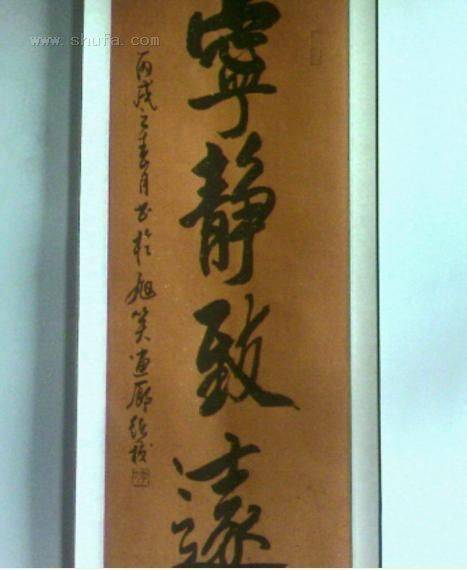 www.shufa.com
寧靜致遠
丙戌之春月书於旭笑画廊